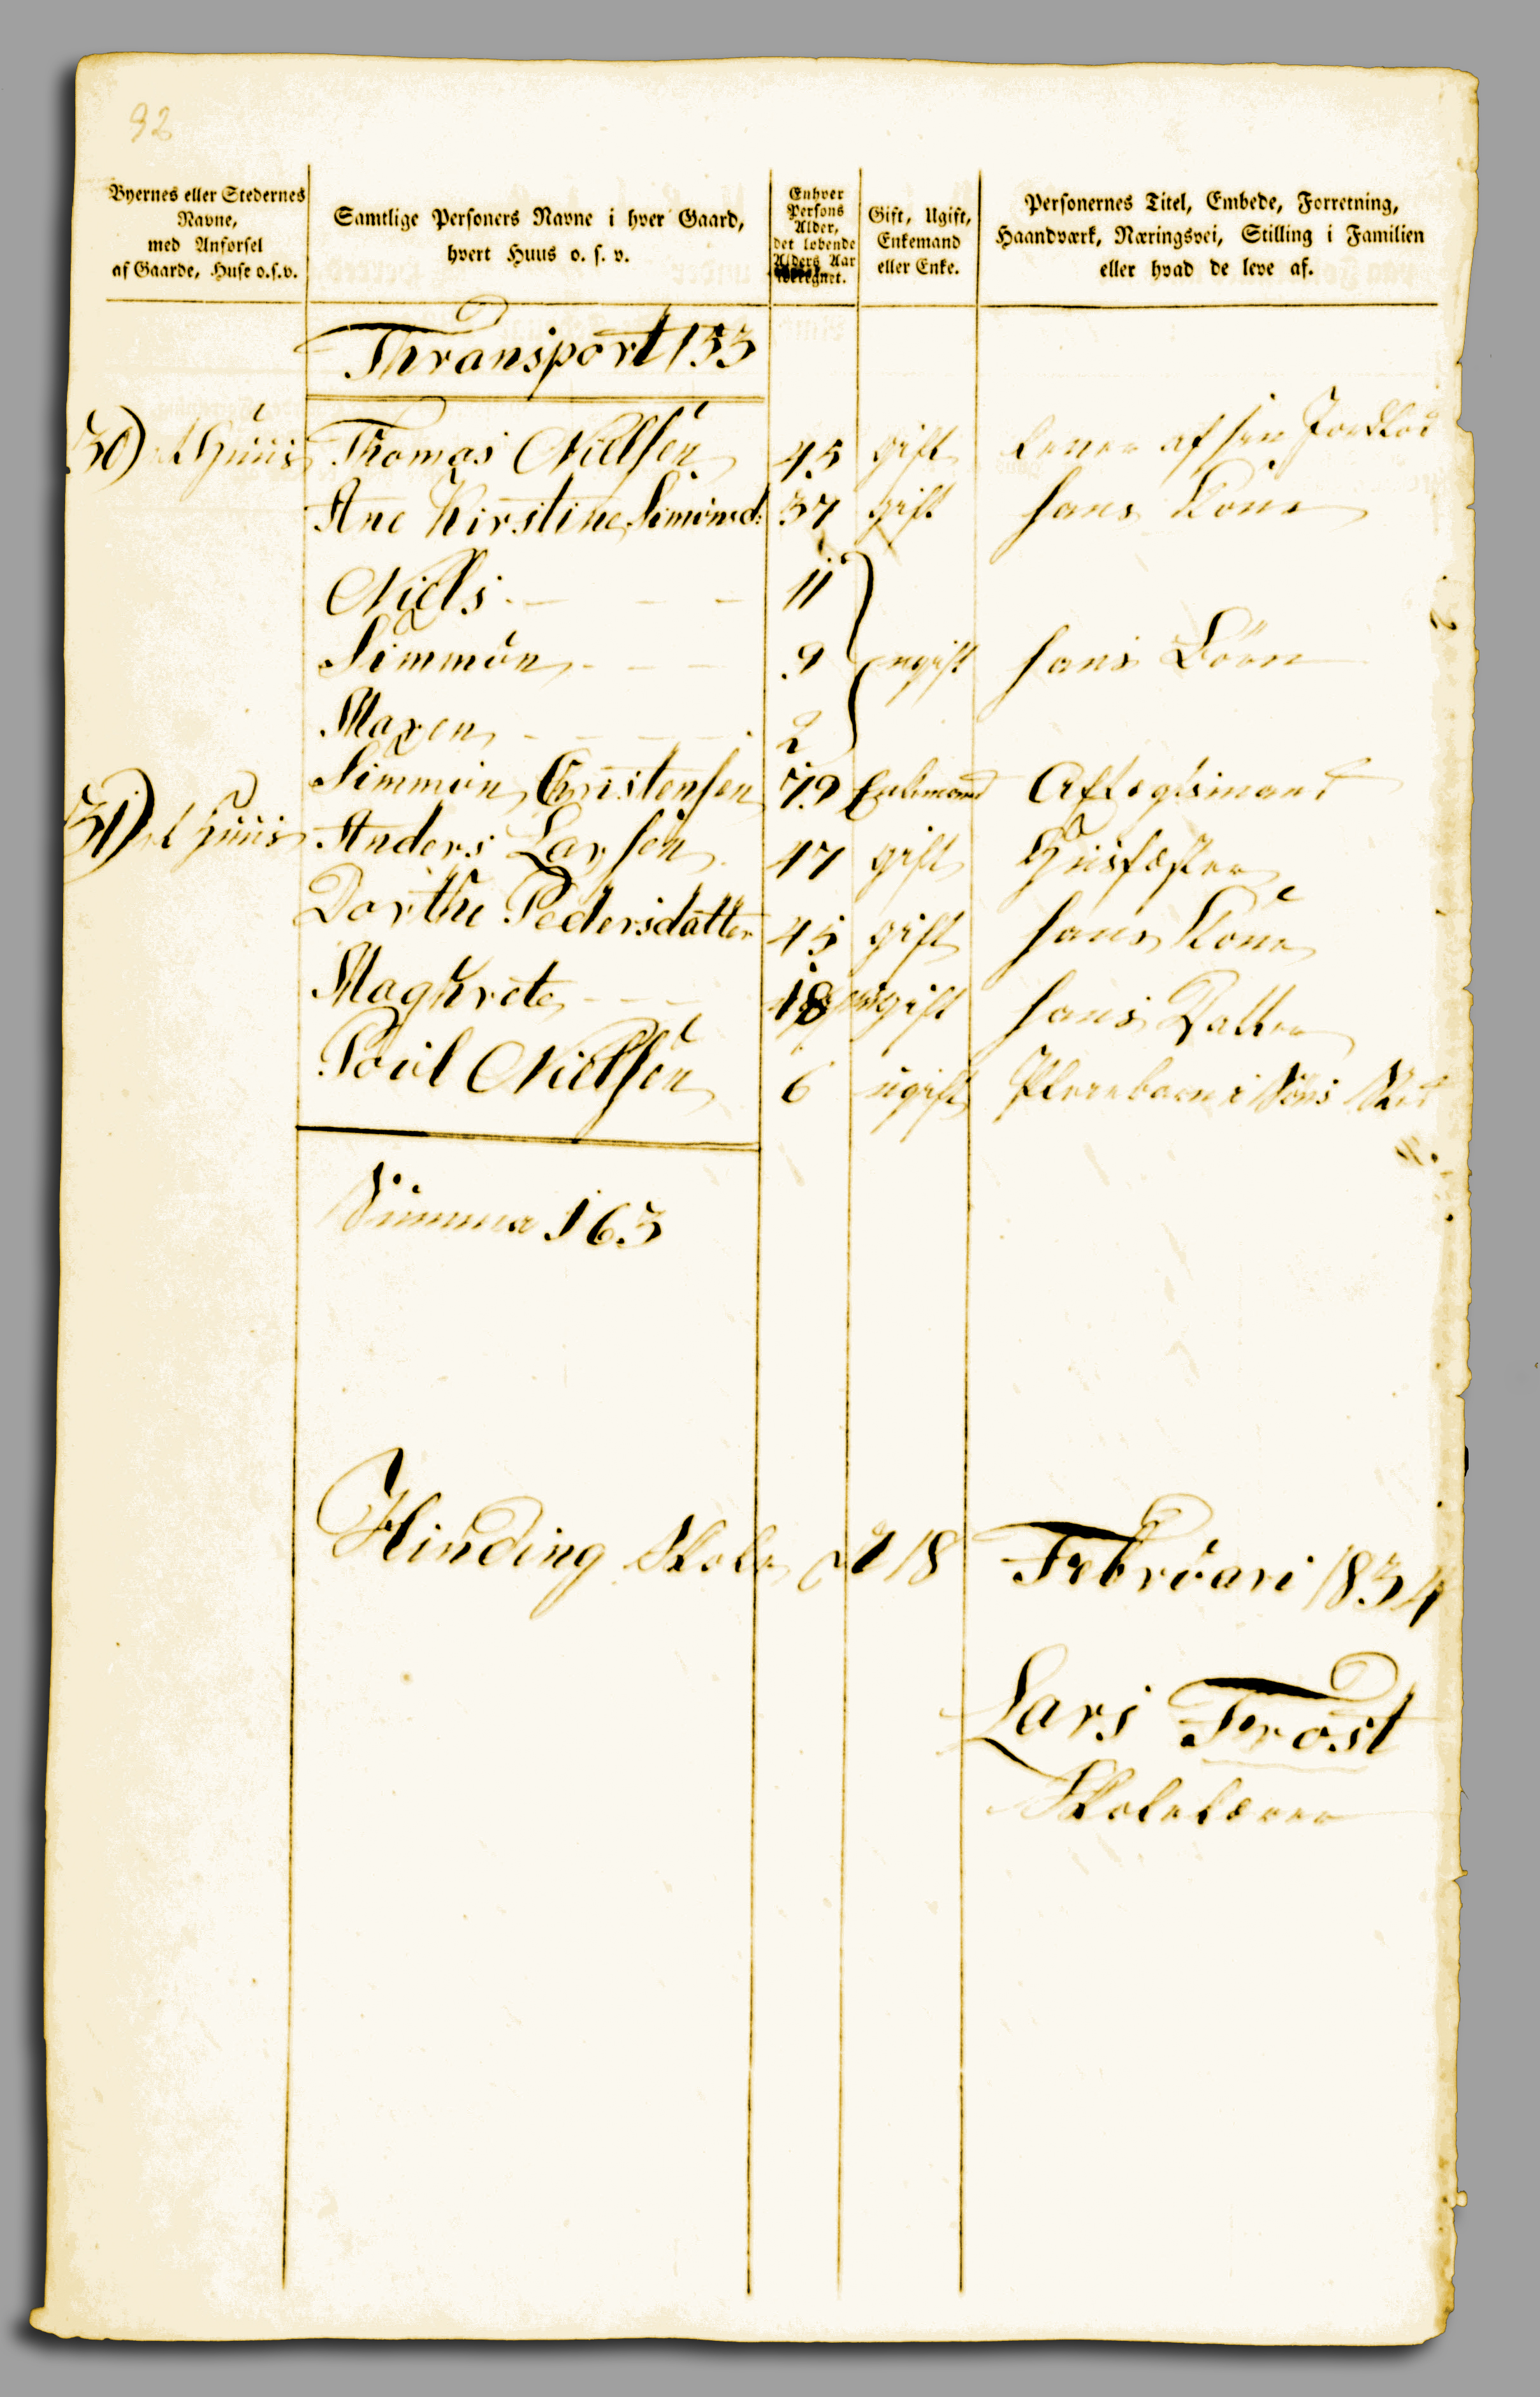 92
Byernes eller Stedernes
Navne,
med Anførsel
af Gaarde, Huse o.s.v.
Samtlige Personers Navne i hver Gaard,
hvert Huus o. s. v.
Enhver
Persons
Alder,
det løbende
Alders Aar
iberegnet.
Gift, Ugift,
Enkemand
eller Enke.
Personernes Titel, Embede, Forretning,
Haandværk, Næringsvei, Stilling i Familien
eller hvad de leve af.
Thransport 153
30) et Huus Thomas Nielsen 45 gift lever af sin Jordlod
Ane Kirstine Simonsd: 37 gift hans Kone
Niels - - - 11
Simmon - - - 9 ugift hans Börn
Maren - - - 2
Simmon Christensen 79 Enkemand Aftægtsmand
31) et Huus Anders Larsen 47 gift Huusfæster
Dorthe Pedersdatter 45 gift hans Kone
Maghrete - - - 18 ugift hans Datter
Poul Nielsen 6 ugift Pleiebarn i
Summa 163
Hinding Skole d 18 Februari 1834
Lars Frost
Skolelærer